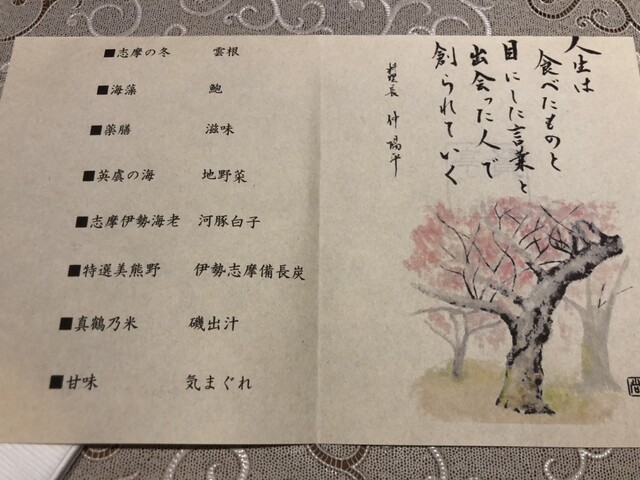 人生は
食べたものと
目にした言葉と
出会った人で
創られていく
料理長 仲陽平
■志摩の冬 雲根
■海藻 鮑
■薬膳 滋味
■英虞の海 地野菜
■志摩伊勢海老 河豚白子
■特選美熊野 伊勢志摩備長炭
■真鶴乃米 磯出汁
■甘味 気まぐれ